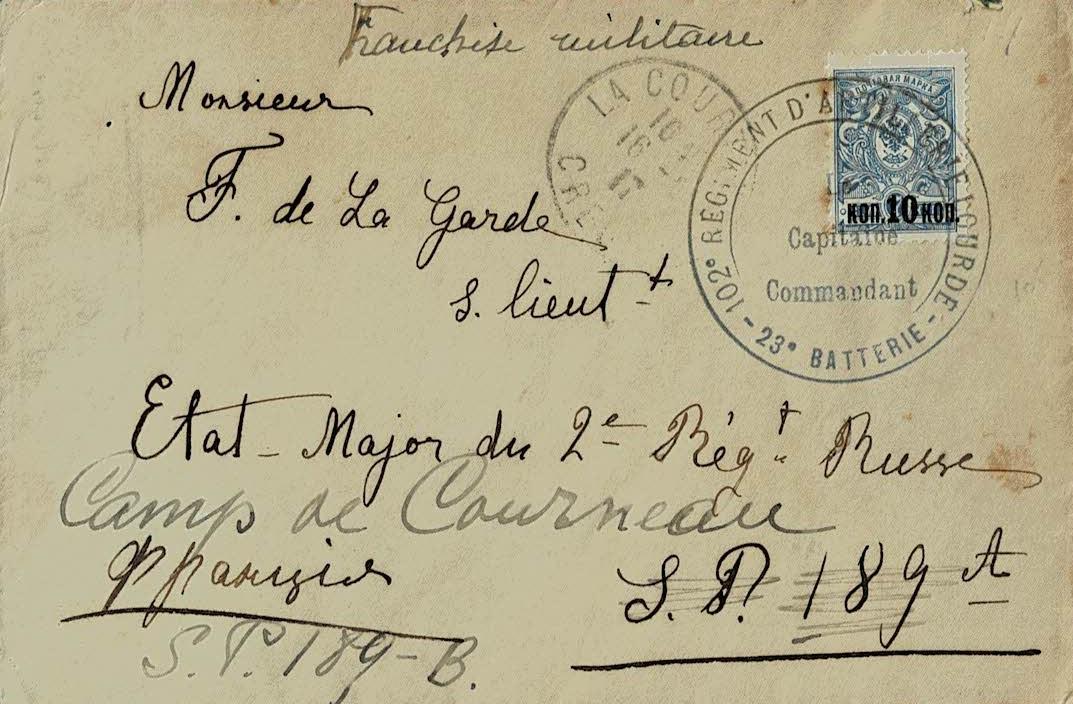 Franchise militaire
Monsieur
F. de La Garde
s. lieut t
Etat-Major du 2e Régt Russe
Camp de Courneau
Франція
S.P. 189 A
S.P. 189-B.
LA COUR
CRE
16
102e RÉGIMENT D'ARTILLERIE LOURDE
Capitaine
Commandant
- 23e BATTERIE -
ПОЧТОВАЯ МАРКА
КОП. 10 КОП.